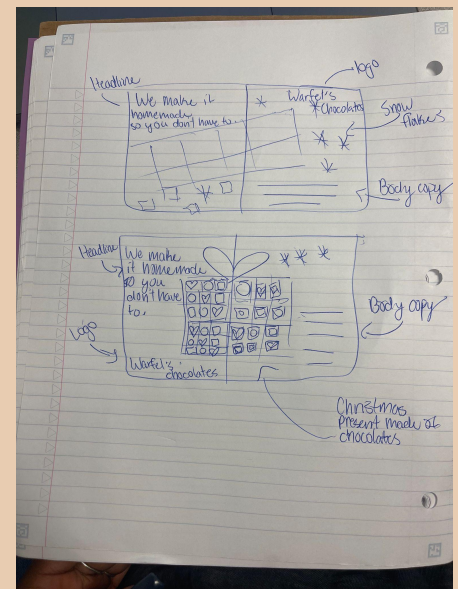 Headline
logo
We make it
homemade
so you don't have to...
Warfel's
Chocolates
Snow
flakes
Body copy
Headline
We make
it homemade
so you
don't have
to.
Body copy
Logo
Warfel's
chocolates
Christmas
Present made of
chocolates